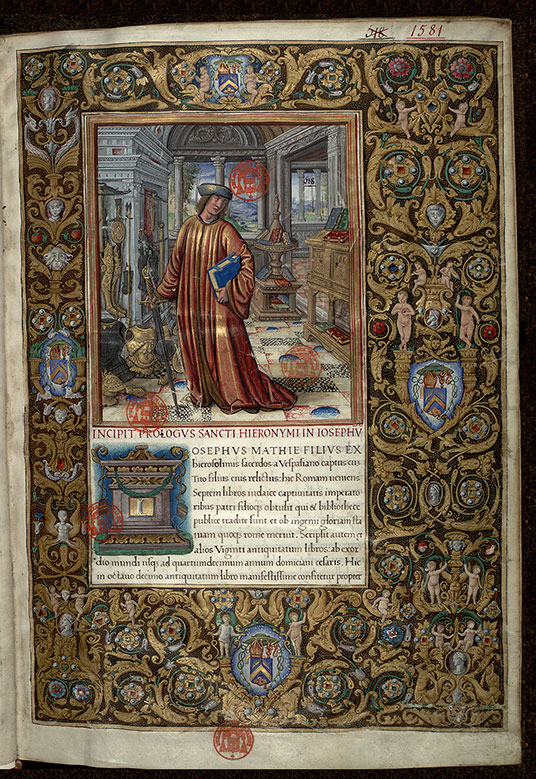 518 1581
518
INCIPIT PROLOGVS SANCTI HIERONYMI IN IOSEPHV
IOSEPHVS MATHIE FILIVS EX
hierosolimis sacerdos a Vespasiano captus cu
Tito filius eius relictus: hic Romam ueniens
Septem libros iudaice captiuitatis imperato
ribus patri filioq3 obtulit qui & bibliothece
publice tradite sunt et ob ingenii gloriam sta
tuam quoq3 rome meruit. Scripsit autem et
alios Viginti antiquitatum libros: ab exor
dio mundi usq3 ad quartumdecimum annum domiciani cesaris. Hic
in octauo decimo antiquitatum libro manifestissime confitetur propter